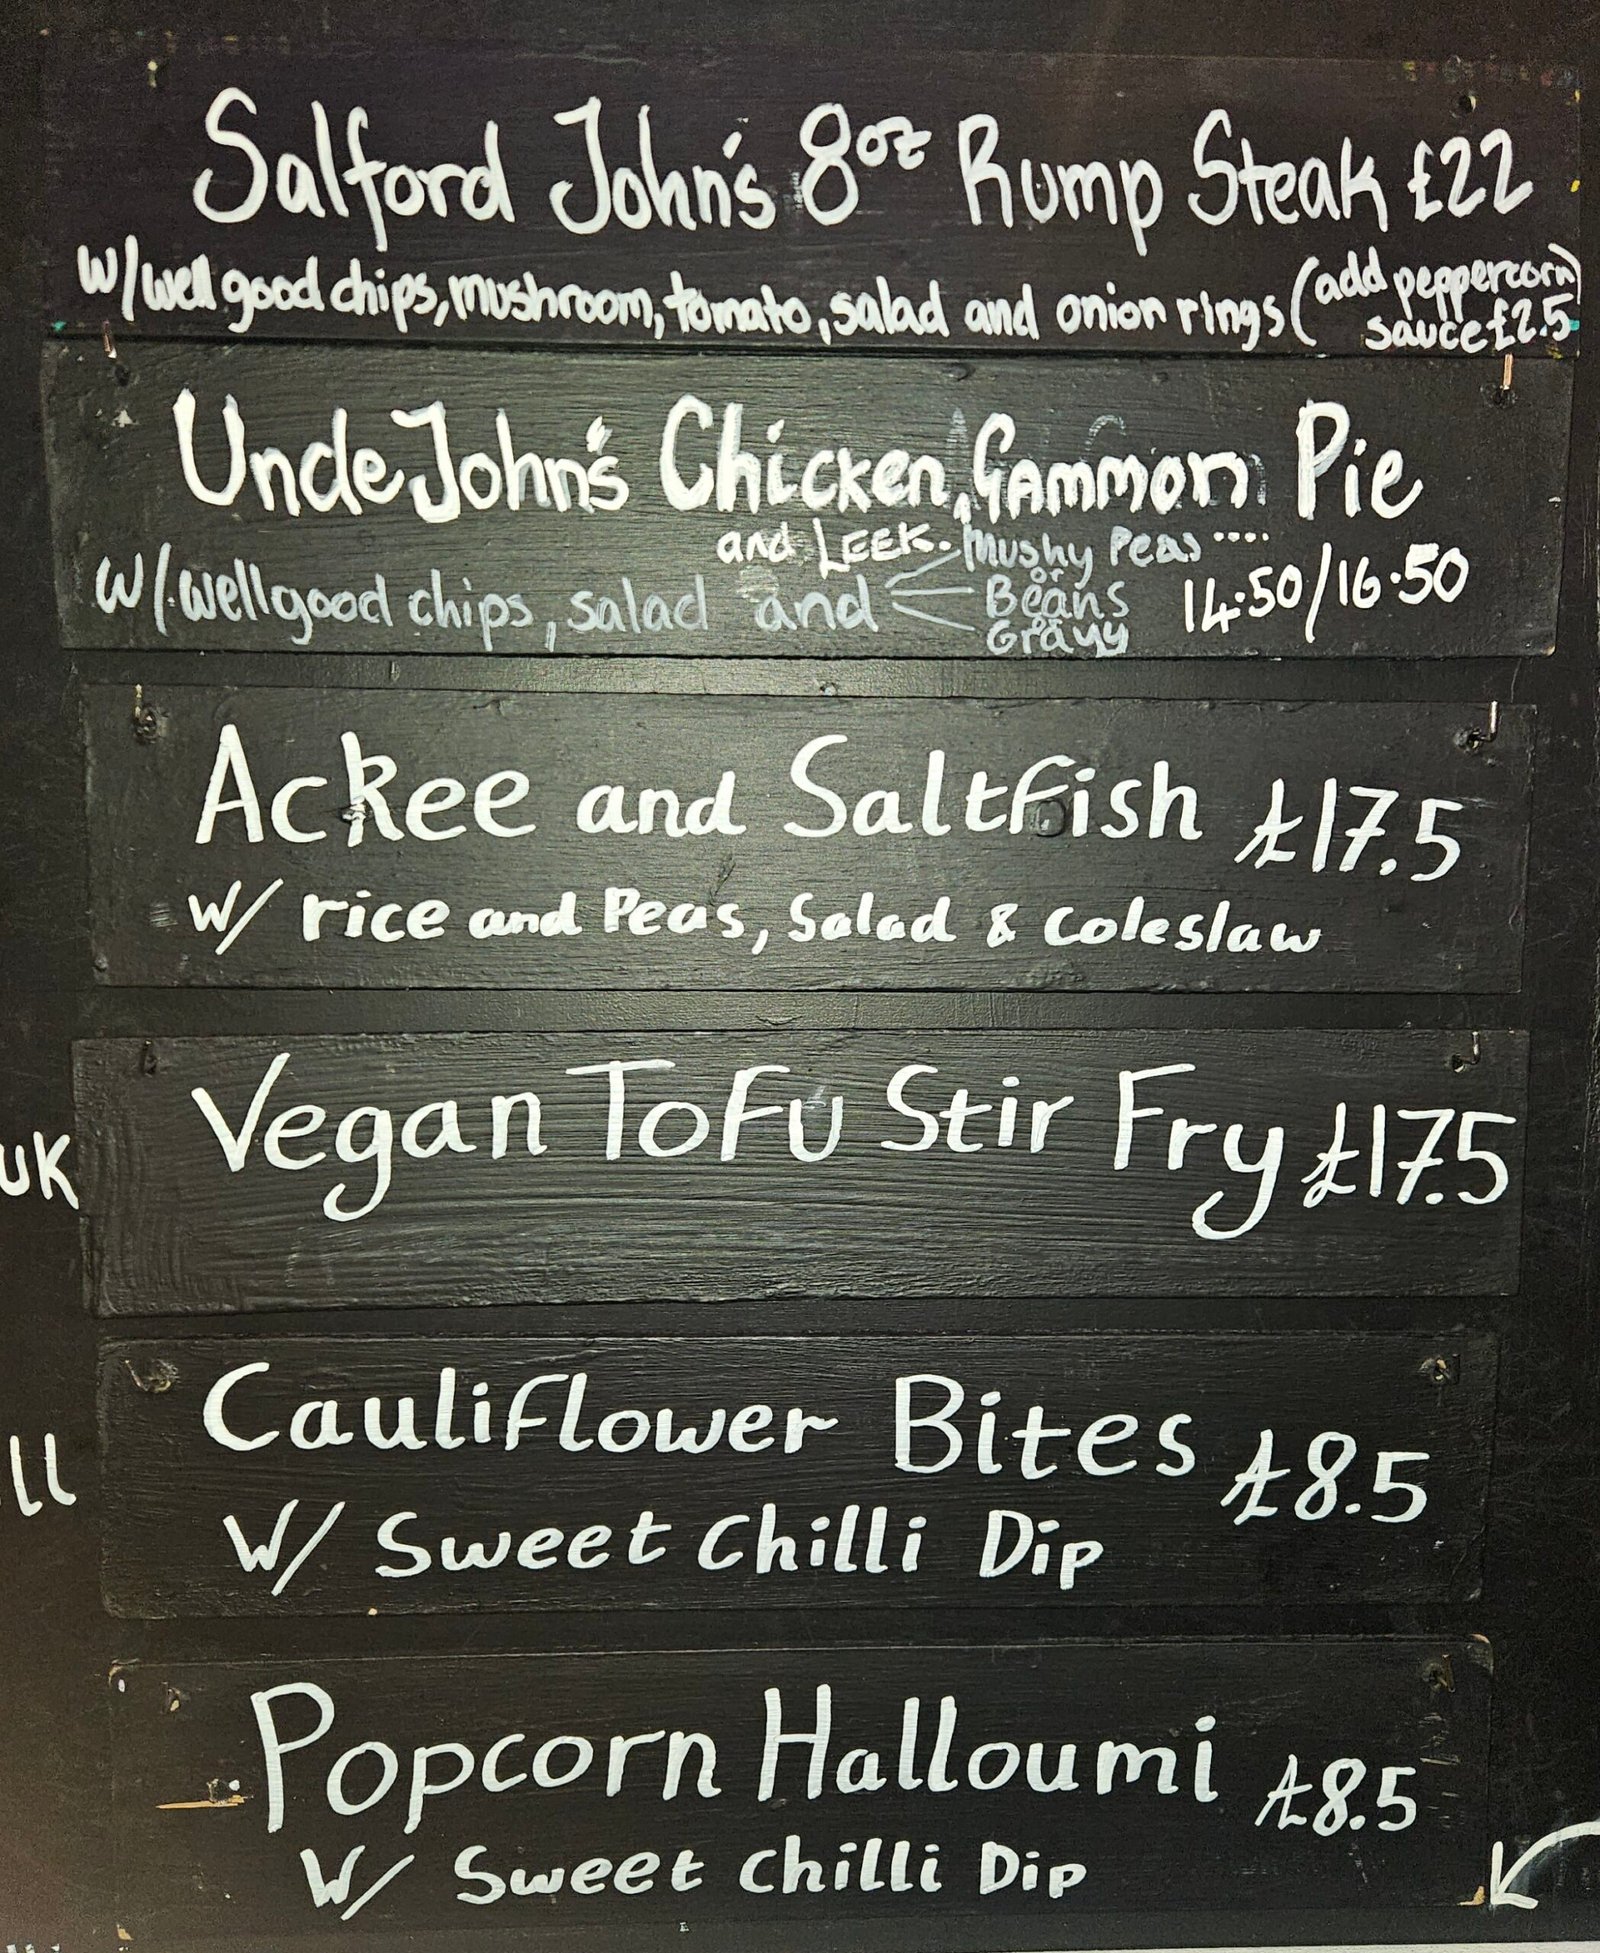 Salford John's 8oz Rump Steak £22
w/well good chips, mushroom, tomato, salad and onion rings (add peppercorn
sauce £2.5)
Uncle John's Chicken, Gammon Pie
and LEEK.
w/.wellgood chips, salad and
Mushy Peas ....
or
Beans
or
Gravy
14.50/16.50
Ackee and Saltfish £17.5
w/ rice and Peas, Salad & coleslaw
UK
Vegan Tofu Stir Fry £17.5
Cauliflower Bites £8.5
W/ Sweet Chilli Dip
ll
Popcorn Halloumi £8.5
W/ Sweet Chilli Dip